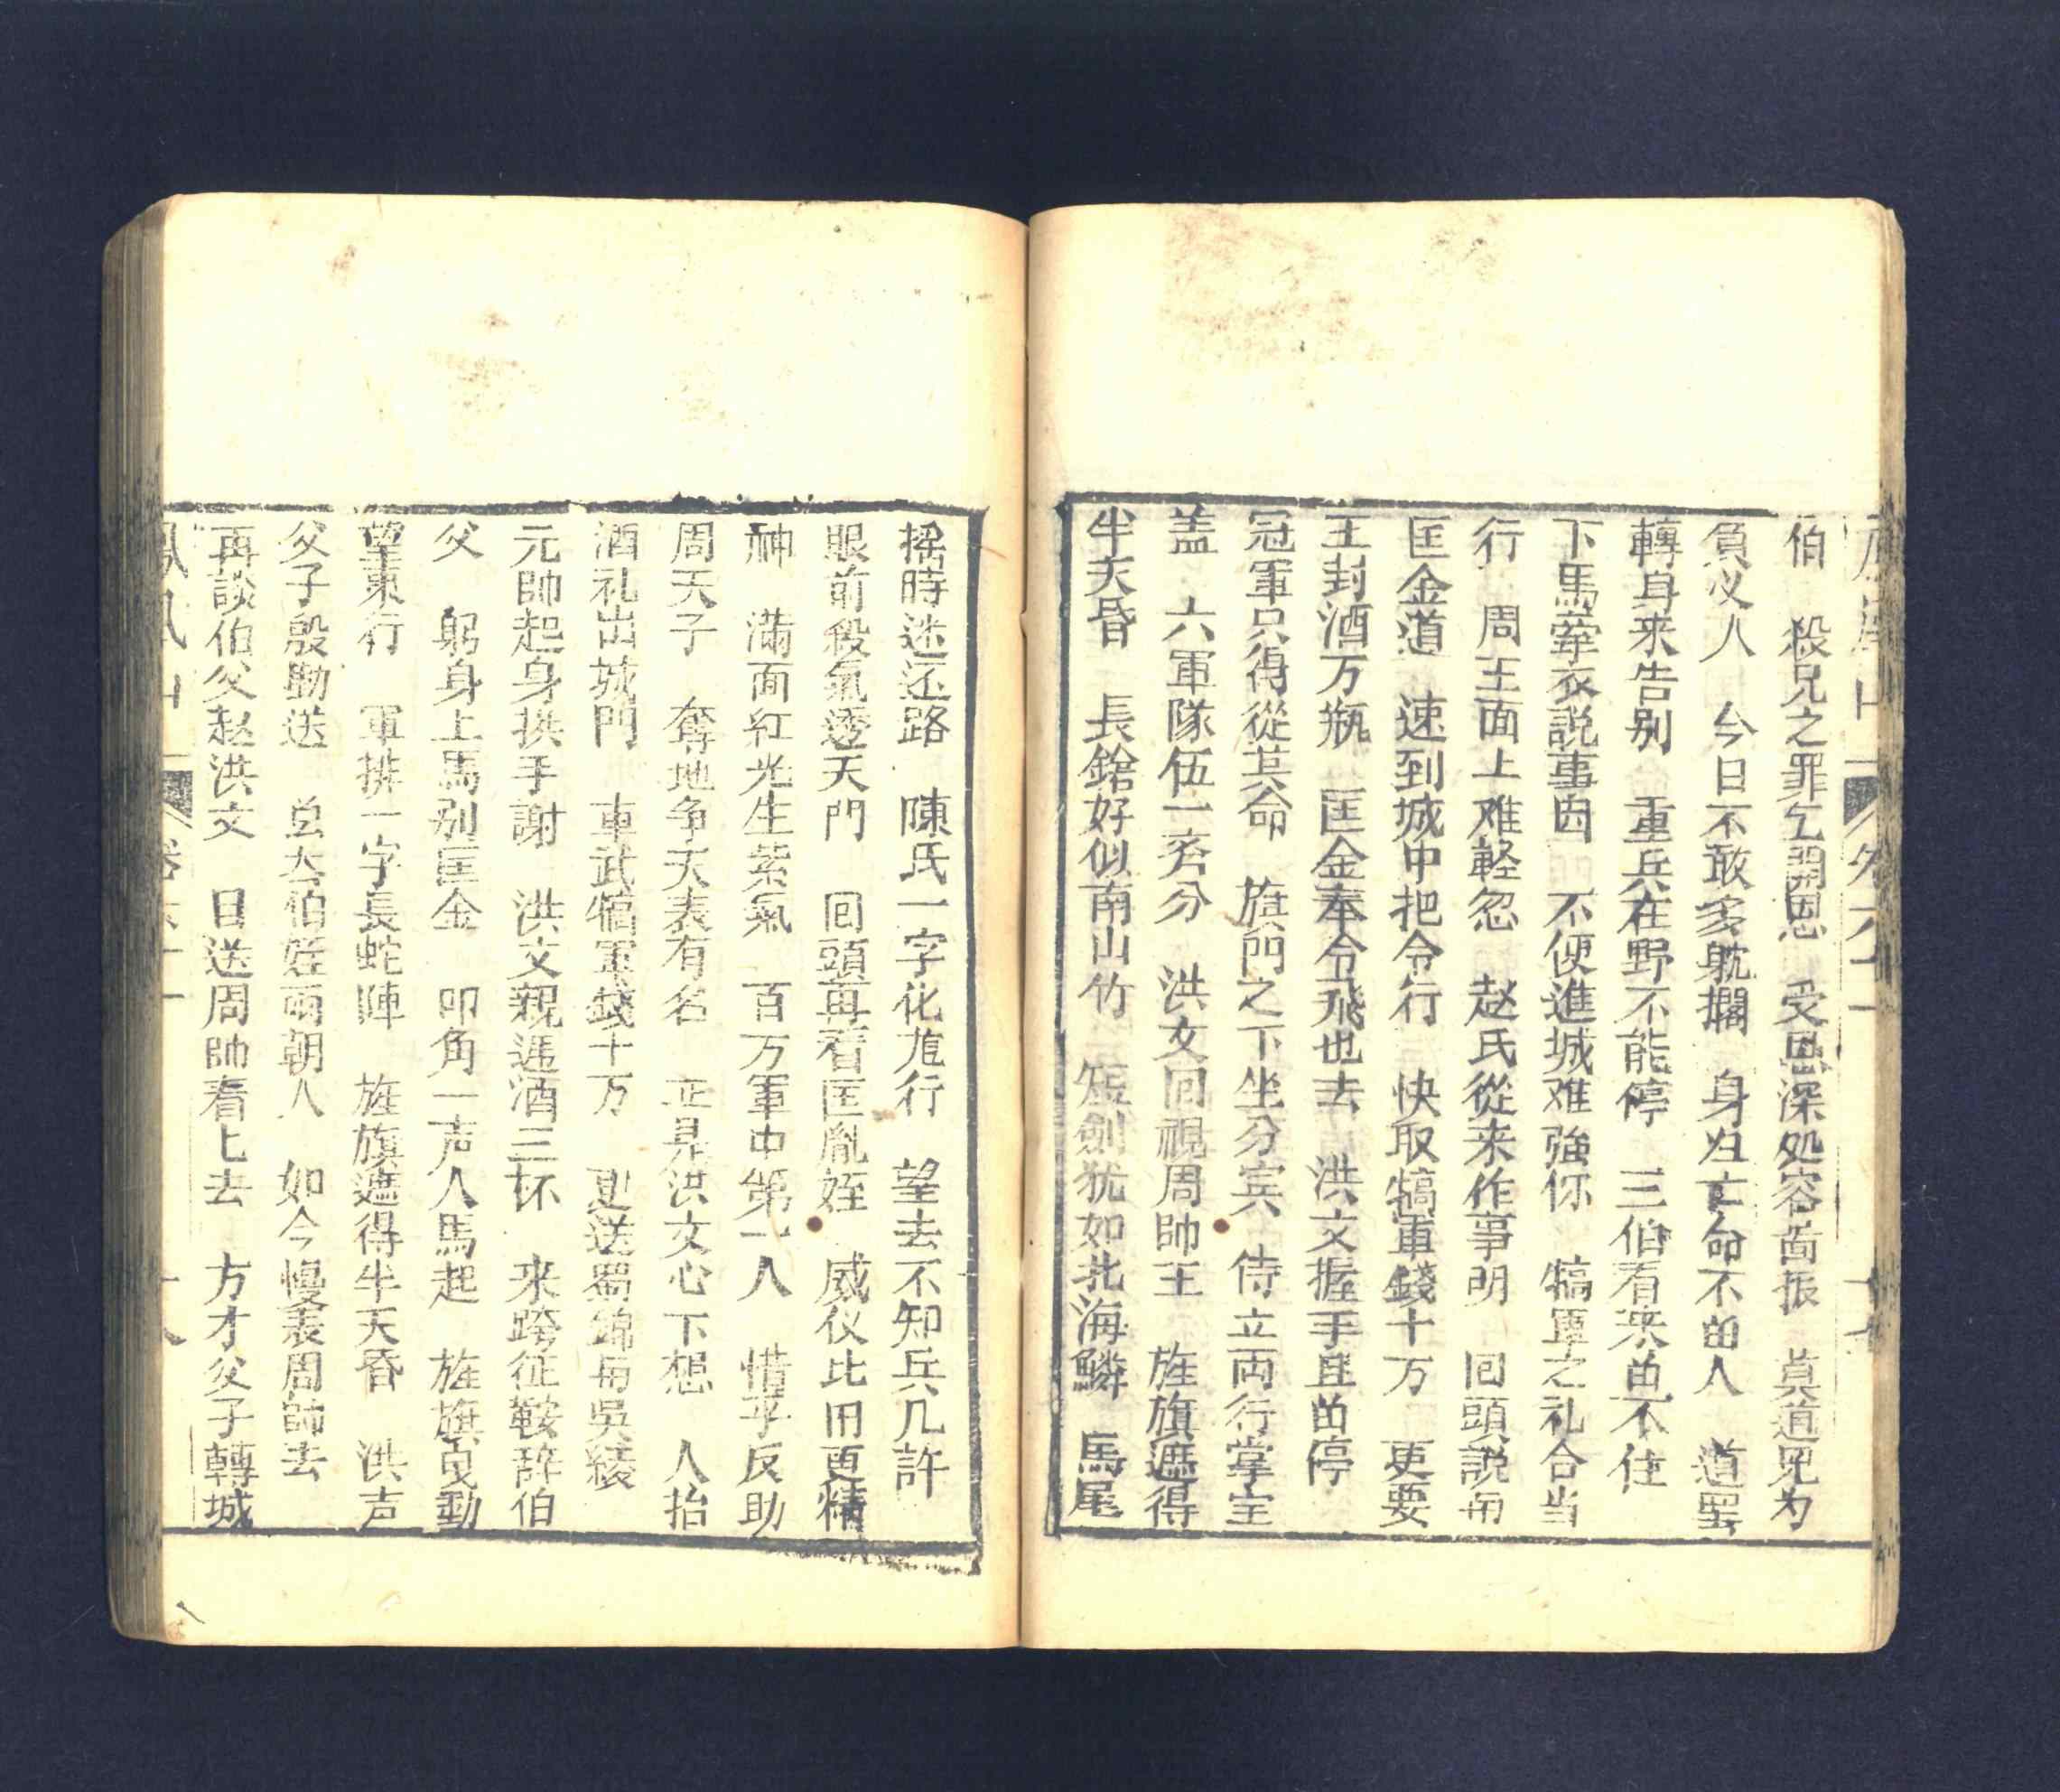 伯　殺兄之罪乞開恩　受恩深処容啚振　莫道兄为
負义人　今日不敢多躭擱　身为亡命不由人　道罢
轉身来告别　重兵在野不能停　三伯看来留不住
下馬牽衣説事因　不便進城难強你　犒軍之礼合当
行　周王面上难輕忽　赵氏從来作事明　回頭説与
匡金道　速到城中把令行　快取犒軍錢十万　更要
王封酒万瓶　匡金奉令飛也去　洪文握手且留停
冠軍只得從其命　旗門之下坐分宾　侍立両行掌宝
盖　六軍隊伍一齐分　洪文回視周帥王　旌旗遮得
半天昏　長鎗好似南山竹　短劍犹如北海鱗　馬尾
搖時迷还路　陳氏一字化龍行　望去不知兵几許
眼前殺氣透天門　回頭再看匡胤姪　威仪比旧更精
神　滿面紅光生紫氣　百万軍中第一人　惜乎反助
周天子　奪地争天表有名　正是洪文心下想　人抬
酒礼出城門　車武犒軍錢十万　更送蜀錦与吳綾
元帥起身拱手謝　洪文親递酒三杯　来跨征鞍辞伯
父　躬身上馬别匡金　叩角一声人馬起　旌旗曳動
望東行　軍排一字長蛇陣　旌旗遮得半天昏　洪声
父子殷勤送　总为伯姪両朝人　如今慢表周師去
再談伯父赵洪文　目送周帥看匕去　方才父子轉城
鳳凰山　卷六十一　十八